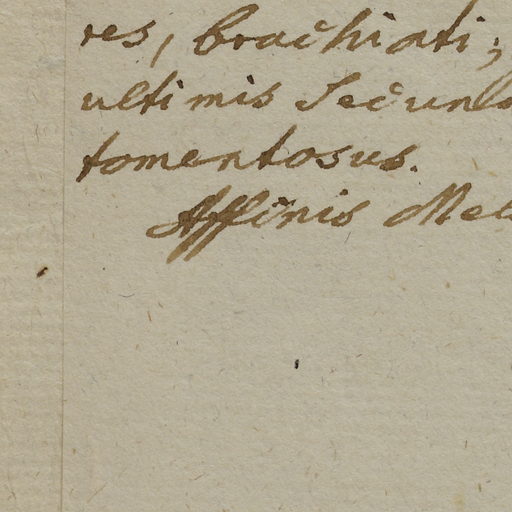 res, brachiati;
ultimis Secun
tomentosus.
Affinis Mel